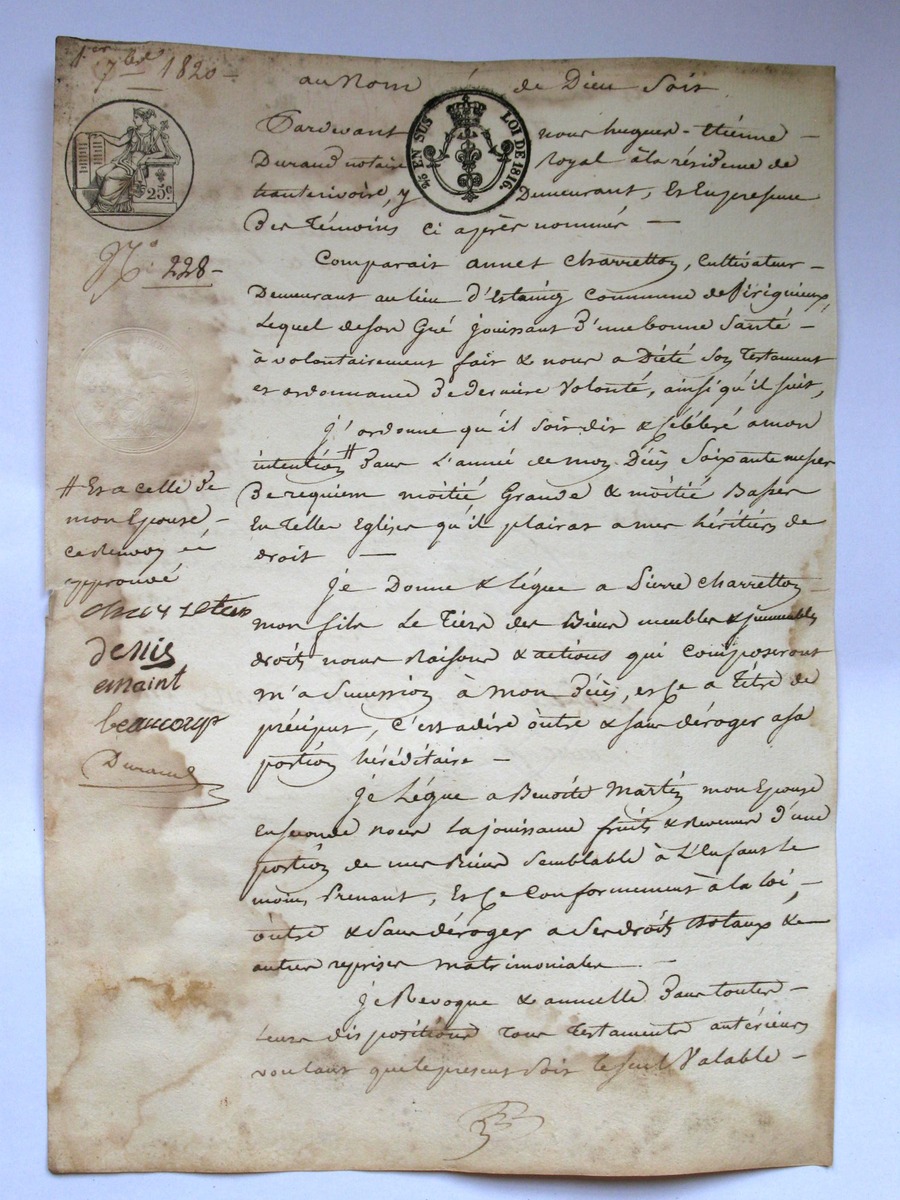 1er 7bre 1820
au Nom de Dieu Soit
25c
¼ EN SUS LOI DE 1816.
Pardevant nous hugues-Etienne
Durand notaire royal à la résidence de
hauterivoire, y Demeurant, Et En présence
Des Témoins ci après nommés —
N° 228
Comparait annet Charretton, Cultivateur
Demeurant au lieu d'Estaing commune de Périgneux,
Lequel de son Gré jouissant D'une bonne Santé
à volontairement fait & nous a Dicté Son Testament
et ordonnance De derniere Volonté, ainsi qu'il suit,
J'ordonne qu'il soit dit & Célébré a mon
intention # Dans L'année de mon Décès Soixante messes
De requiem moitié Grandes & moitié Basses
En Telles Eglises qu'il plairat a mes héritiers de
droit —
# Et a celle de
mon Epouse,
ce Renvoy é
approuvé
charreton
denis
emaint
beaucoup
Durand
Je Donne & Légue a Pierre Charretton
mon fils Le Tiers des Biens meubles & immeubles
droits noms Raisons & actions qui composeront
m'a Succession à mon Décès, et Ce a Titre de
préciput, c'est adire ôutre & sans déroger a sa
portion héréditaire —
Je Légue a Benoîte Martin mon Epouse
En seconde noces La jouissance fruits & Revenus d'une
portion de mes Biens Semblable à L'Enfant le
moins Prenant, Et Ce Conformement à la loi,
ôutre & Sans déroger a Ses droits Dotaux &
autres reprises matrimoniales —
Je Revoque & annulle Dans toutes
Leurs dispositions Tous Testaments antérieurs
voulant que le present Soit le seul Valable —